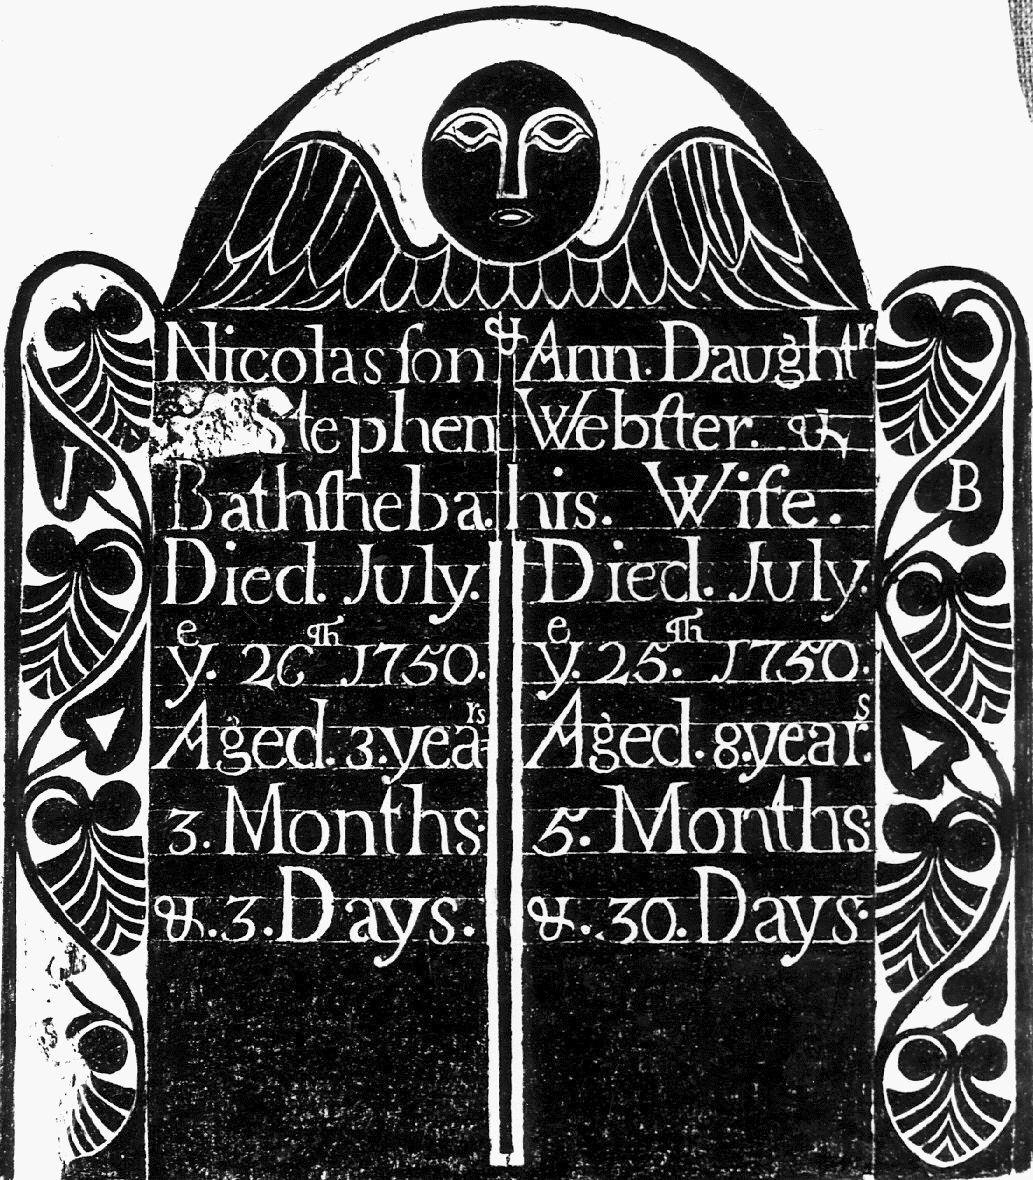 Nicolas ſon & Ann. Daughtʳ
Stephen Webſter. &
Bathſheba. his. Wife.
Died. July.
yᵉ. 26ᵗʰ 1750.
Aged. 3. yeaʳˢ
3. Months
&. 3. Days.
Died. July.
yᵉ. 25.ᵗʰ 1750.
Aged. 8. yearˢ.
5. Months
&. 30. Days
J
B